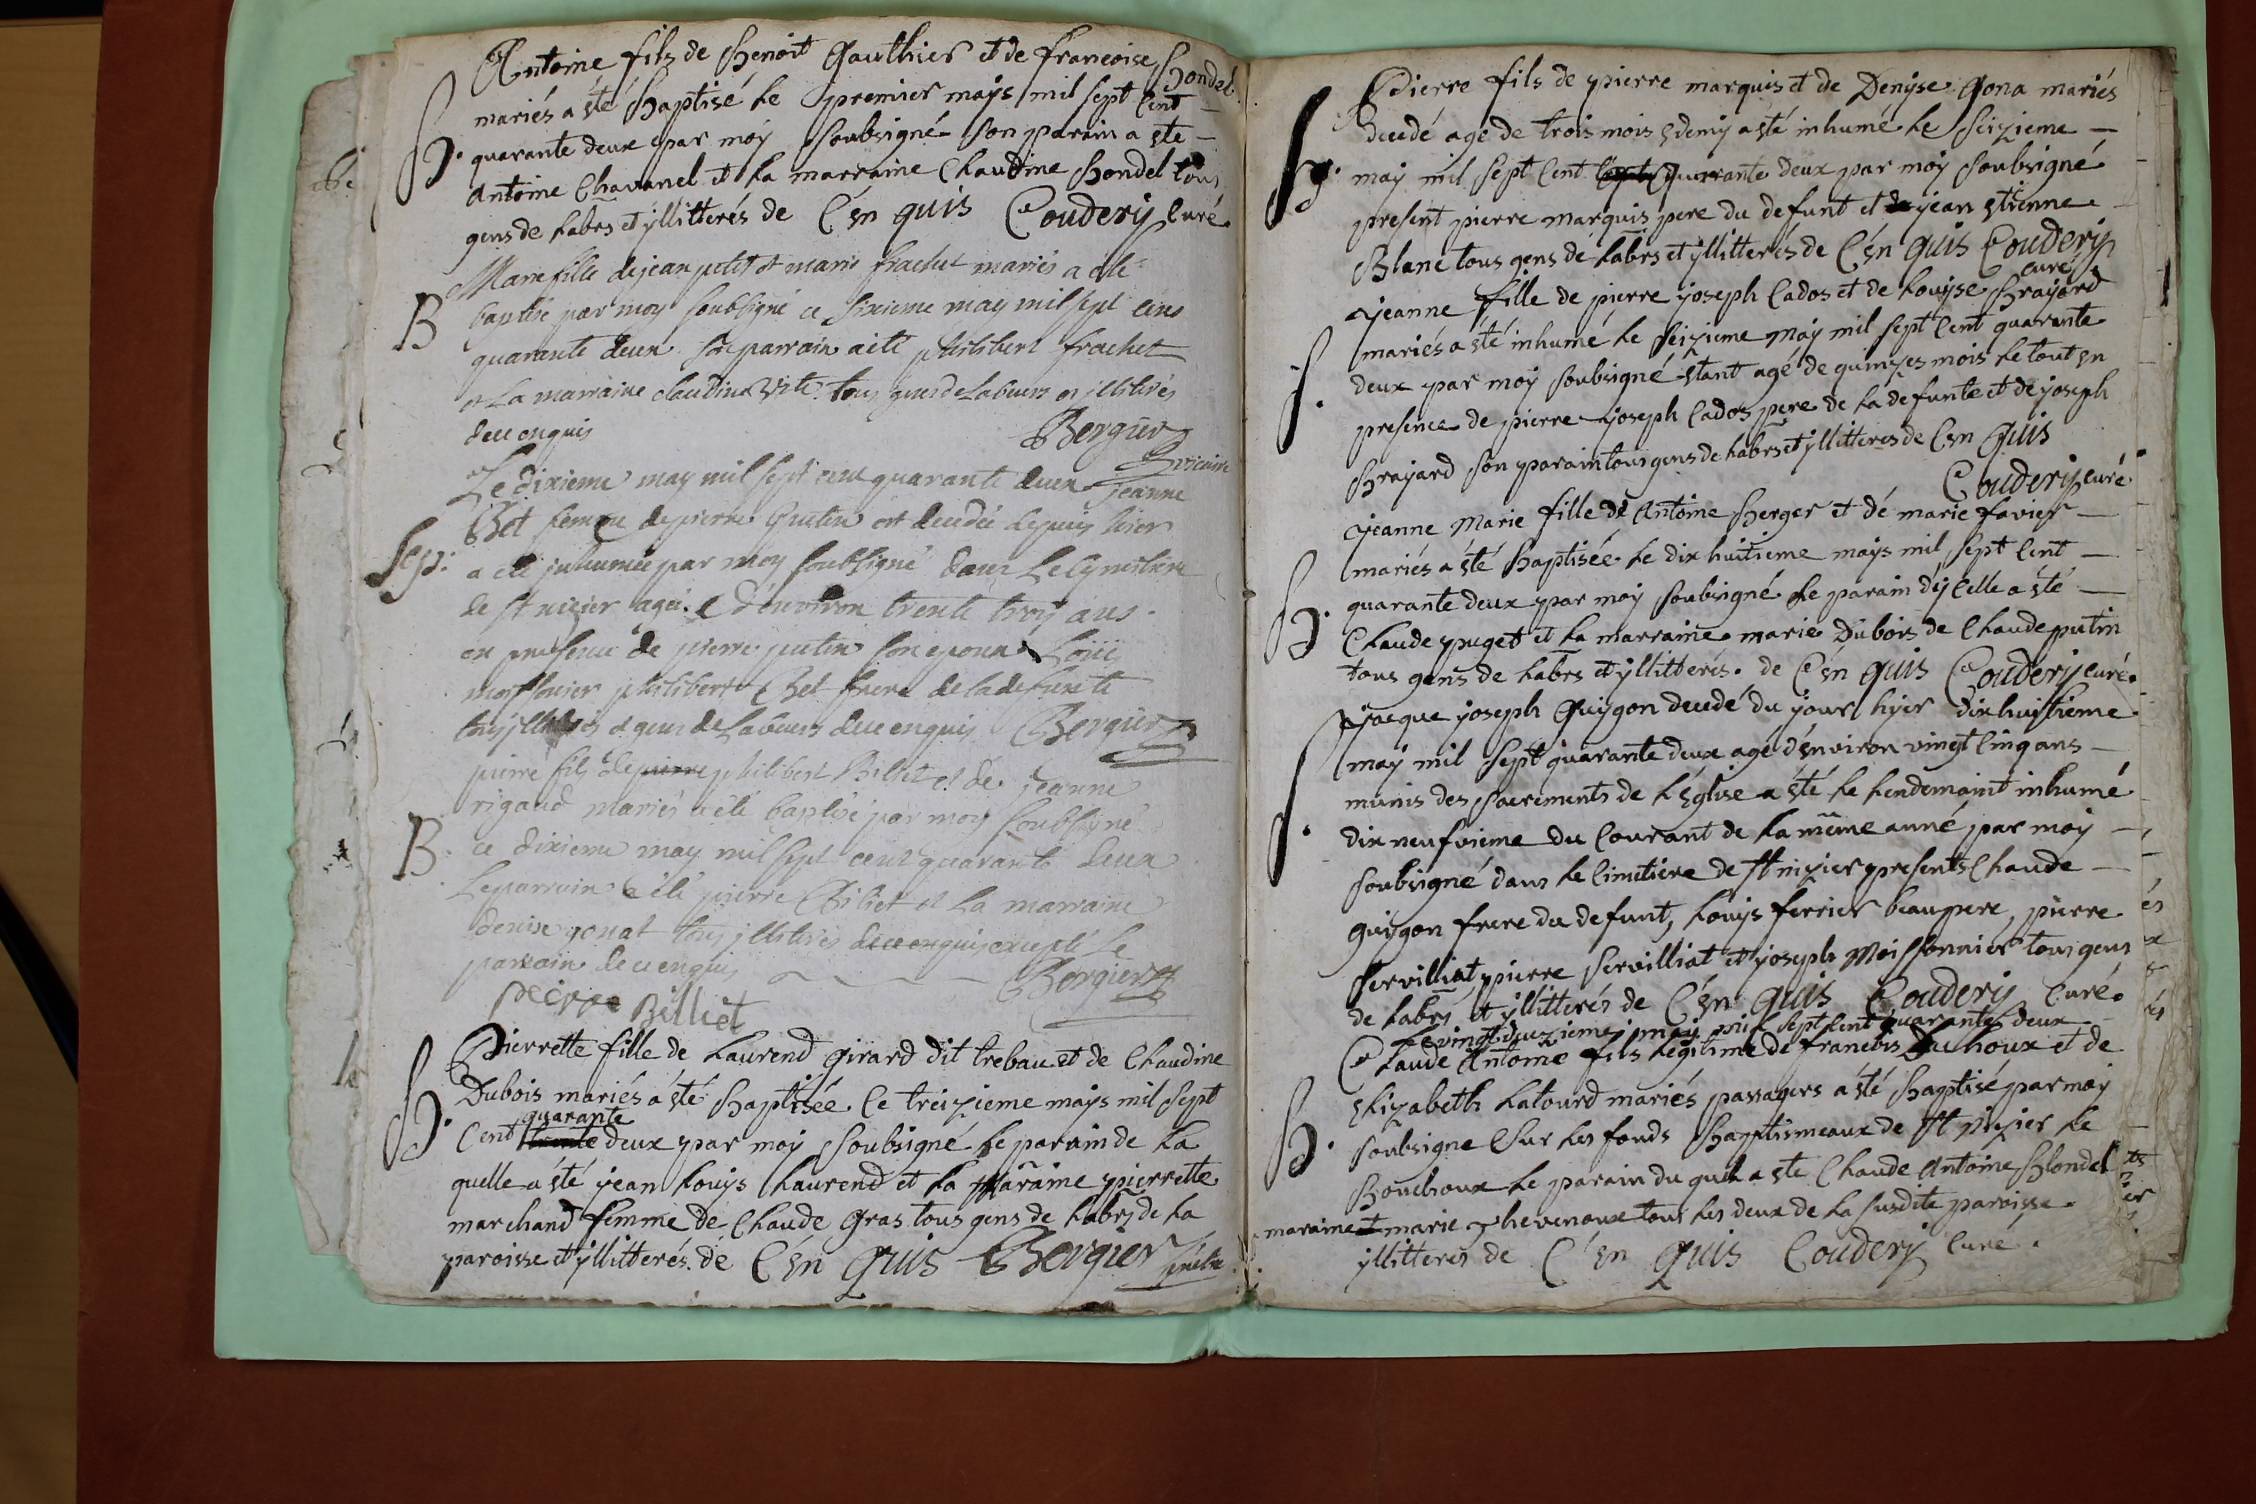 Antoine fils de Benoit Gauthier et de francoise Bondel
mariés a êté Baptisé le premier mays mil sept Cent
B. quarante deux par moy soubsigné son parain a ete
Antoine Chavanel et la marraine Claudine Bondel tous
gens de labrs et yllitterés de C'en quis Coudery Curé
Marie fille de jean petit et marie frachet mariés a ete
B baptisé par moy soubsigné ce sixieme may mil sept cens
quarante deux son parrain a eté philibert frachet
et La marraine claudine tous gens de Labeurs et illitirés
de ce enquis Bergier
vicaire
Le dixieme may mil sept cens quarante deux jeanne
Chet femme de pierre putin est decedée depuis hier
Sep. a eté inhumée par moy soubsigné dans Le Cymetiere
de st nizier agée d'environ trente trois ans
en presence de pierre putin son epoux Loüis
moissonier philibert Chet frere de la defunte
tous illitirés et gens de Labeurs de ce enquis Bergier
pierre fils de pierre philibert Billiet et de jeanne
rigaud mariés a été baptisé par moy soubsigné
B. ce dixieme may mil sept cens quarante deux
Le parrain a été pierre Billiet et La marraine
denise gonat tous illitirés de ce enquis excepté Le
parrain de ce enquis Bergier
pierre Billiet
Pierrette fille de Laurend Girard dit trebau et de Claudine
Dubois mariés a êté Baptisée le treizieme mays mil sept
quarante
B. Cent trente deux par moy soubsigné le parain de la
quelle a êté jean Louys Laurend et la maraine pierrette
marchand femme de Claude Gras tous gens de labrs de la
paroisse et yllitterés de C'en quis Bergier prêtre
Pierre fils de pierre marquis et de Denyse Gona mariés
decedé age de trois mois & demy a êté inhumé le seizieme
S. may mil sept Cent sept quarante deux par moy soubsigné
present pierre marquis pere du defunt et de jean Etienne
Blanc tous gens de labrs et yllitterés de C'en quis Coudery
curé
jeanne fille de pierre joseph Cados et de Louyse Brayard
mariés a êté inhumé le seizieme may mil sept Cent quarante
S. deux par moy soubsigné êtant agé de quinzes mois le tout en
presence de pierre joseph Cados pere de la defunte et de joseph
Brayard son parain tous gens de labrs et yllitteres de C'en quis
Coudery curé
jeanne Marie fille de Antoine Berger et dé marie favier
mariés a êté Baptisée le dix huitieme mays mil sept Cent
B. quarante deux par moy soubsigné le parain d'ycelle a êté
Claude puget et la marraine marie Dubois de Claude putin
tous gens de labrs et yllitterés de C'en quis Coudery curé
jacque joseph Guygon decedé du jour hyer dix huitieme
may mil sept quarante deux agé d'environ vingt cinq ans
munis des sacrements de l'Eglise a êté le lendemaint inhumé
S. dix neufvieme du Courant de la même anné par moy
soubsigné dans le Cimetiere de St nizier presents Claude
Guygon frere du defunt, Louys ferrier beaupere, pierre
Servilliat, pierre Servilliat et joseph Moissonnier tous gens
de labrs et yllitterés de C'en quis Coudery Curé
le vingt deuzieme may mil sept Cent quarante deux
Claude Antoine fils légitime de francois Duchoux et de
Elizabeth Latourd mariés passagers a êté Baptisé par moy
B. soubsigne sur les fonds Baptismeaux de St nizier le
Bouchoux le parain du quel a ete Claude Antoine Blondel
maraine et marie thevenoux tous les deux de la susdite paroisse
yllitteres de C'en quis Coudery Cure